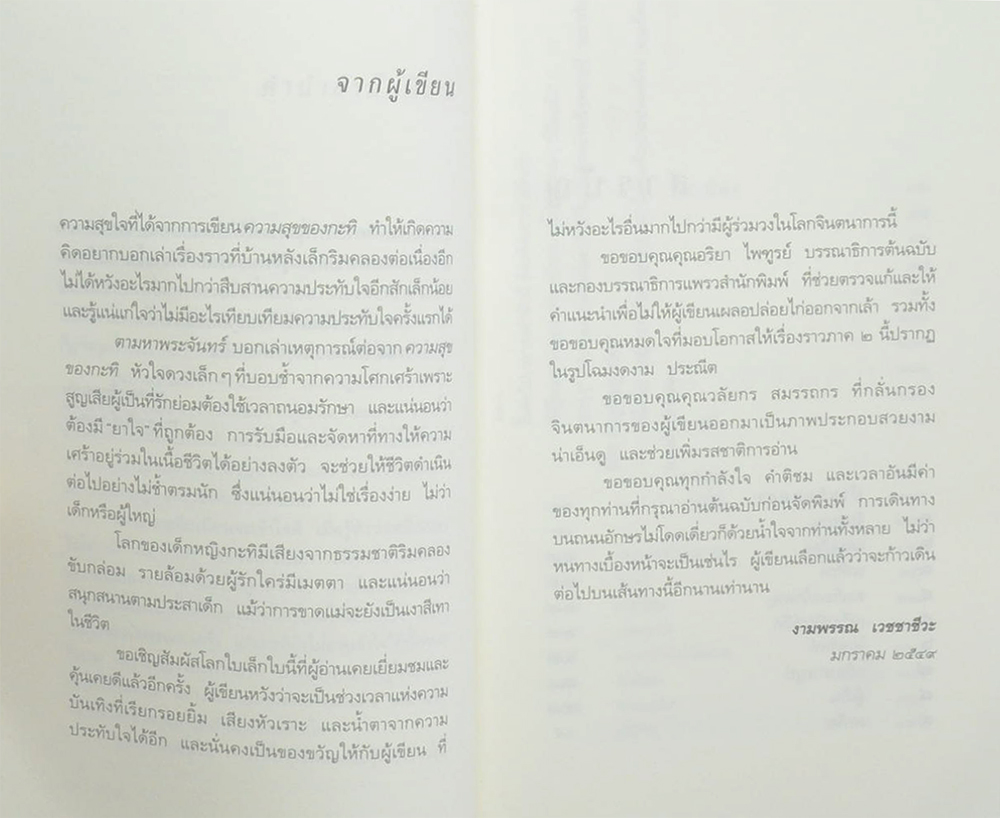 จากผู้เขียน
ความสุขใจที่ได้จากการเขียน ความสุขของกะทิ ทำให้เกิดความ
คิดอยากบอกเล่าเรื่องราวที่บ้านหลังเล็กริมคลองต่อเนื่องอีก
ไม่ได้หวังอะไรมากไปกว่าสืบสานความประทับใจอีกสักเล็กน้อย
และรู้แน่แก่ใจว่าไม่มีอะไรเทียบเทียมความประทับใจครั้งแรกได้
ตามหาพระจันทร์ บอกเล่าเหตุการณ์ต่อจาก ความสุข
ของกะทิ หัวใจดวงเล็ก ๆ ที่บอบช้ำจากความโศกเศร้าเพราะ
สูญเสียผู้เป็นที่รักย่อมต้องใช้เวลาถนอมรักษา และแน่นอนว่า
ต้องมี "ยาใจ" ที่ถูกต้อง การรับมือและจัดหาที่ทางให้ความ
เศร้าอยู่ร่วมในเนื้อชีวิตได้อย่างลงตัว จะช่วยให้ชีวิตดำเนิน
ต่อไปอย่างไม่ช้ำตรมนัก ซึ่งแน่นอนว่าไม่ใช่เรื่องง่าย ไม่ว่า
เด็กหรือผู้ใหญ่
โลกของเด็กหญิงกะทิมีเสียงจากธรรมชาติริมคลอง
ขับกล่อม รายล้อมด้วยผู้รักใคร่มีเมตตา และแน่นอนว่า
สนุกสนานตามประสาเด็ก แม้ว่าการขาดแม่จะยังเป็นเงาสีเทา
ในชีวิต
ขอเชิญสัมผัสโลกใบเล็กใบนี้ที่ผู้อ่านเคยเยี่ยมชมและ
คุ้นเคยดีแล้วอีกครั้ง ผู้เขียนหวังว่าจะเป็นช่วงเวลาแห่งความ
บันเทิงที่เรียกรอยยิ้ม เสียงหัวเราะ และน้ำตาจากความ
ประทับใจได้อีก และนั่นคงเป็นของขวัญให้กับผู้เขียน ที่
ไม่หวังอะไรอื่นมากไปกว่ามีผู้ร่วมวงในโลกจินตนาการนี้
ขอขอบคุณคุณอริยา ไพฑูรย์ บรรณาธิการต้นฉบับ
และกองบรรณาธิการแพรวสำนักพิมพ์ ที่ช่วยตรวจแก้และให้
คำแนะนำเพื่อไม่ให้ผู้เขียนเผลอปล่อยไก่ออกจากเล้า รวมทั้ง
ขอขอบคุณหมดใจที่มอบโอกาสให้เรื่องราวภาค ๒ นี้ปรากฏ
ในรูปโฉมงดงาม ประณีต
ขอขอบคุณคุณวลัยกร สมรรถกร ที่กลั่นกรอง
จินตนาการของผู้เขียนออกมาเป็นภาพประกอบสวยงาม
น่าเอ็นดู และช่วยเพิ่มรสชาติการอ่าน
ขอขอบคุณทุกกำลังใจ คำติชม และเวลาอันมีค่า
ของทุกท่านที่กรุณาอ่านต้นฉบับก่อนจัดพิมพ์ การเดินทาง
บนถนนอักษรไม่โดดเดี่ยวก็ด้วยน้ำใจจากท่านทั้งหลาย ไม่ว่า
หนทางเบื้องหน้าจะเป็นเช่นไร ผู้เขียนเลือกแล้วว่าจะก้าวเดิน
ต่อไปบนเส้นทางนี้อีกนานเท่านาน
งามพรรณ เวชชาชีวะ
มกราคม ๒๕๔๙